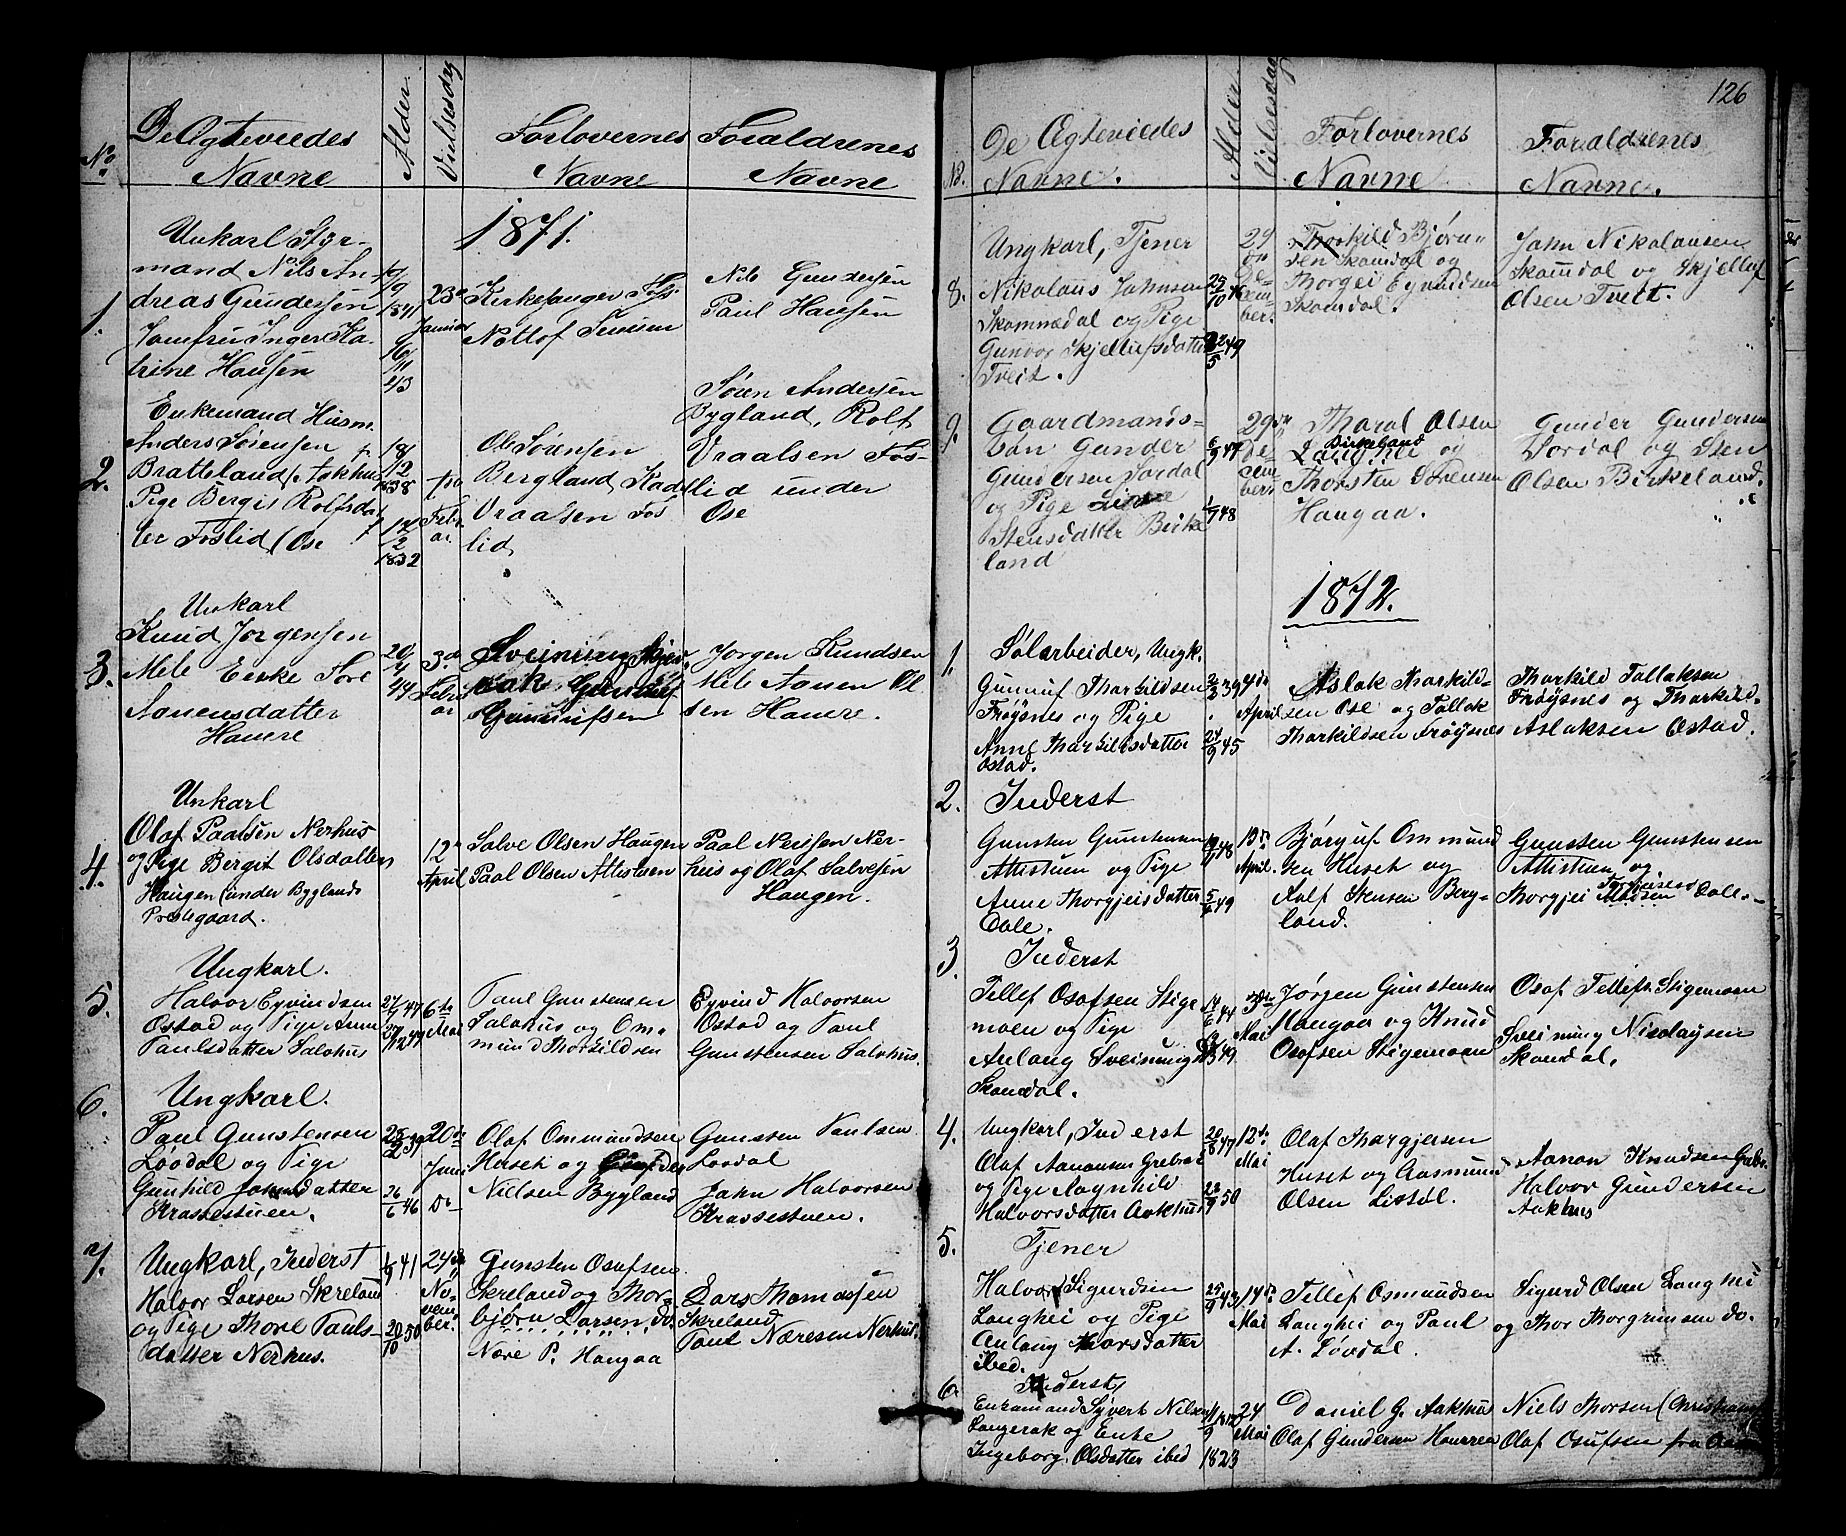 126
No.
De Ægteviedes
Navne
Alder
Vielsesdag
Forlovernes
Navne
Foraldrenes
Navne
1871.
1.
Unkarl Styr-
mand Nils An-
dreas Gundersen
Jomfru Inger Ka-
trine Hansen
19/9
1841
16/11
43
23de
Januar
Kirkesanger
Nottof
Nils Gundersen
Paul Hansen
2.
Enkemand Husm.
Anders Sörensen
Bratteland (Aakhus
Pige Bergit Rolfsdat
ter Foslid (Ose
18/12
1838
12/2
1832
Febr
ar
Ole Sørensen
Bergland
Vraalsen Fos
lid
Sören Andersen
Bygland, Rolf
Vraalsen Fos-
lid under
Ose
3.
Unkarl
Knud Jorgensen
Mele Enke Tore
Aanensdatter
Havere
20/4
44
3de
Februar
Sveinung
Gunnufsen
Jorgen Knudsen
Mele Aanen Ol
sen Havere.
4.
Unkarl
Olaf Paalsen Nerhus
og Pige Bergit Olsdatter
Haugen (under Byglands
Prestegaard.
12te
April
Salve Olsen Haugen
Paal Olsen Attistuen
Paal Neilsen Ner-
hus og Olaf Salvesen
Haugen.
5.
Ungkarl.
Halvor Eyvindsen
Ostad og Pige Anne
Paulsdatter Salohus
6te
Mai
Paul Gunstensen
Salohus og Om-
mund Thorkildsen
Eyvind Halvorsen
Ostad og Paul
Gunstensen Salohus.
6.
Ungkarl.
Paul Gunstensen
Løvdal og Pige
Gunhild Johnsdatter
Krassestuen.
25/2 39
26/6 46
20de
Juni
Do
Olaf Ommundsen
Huset og Gunder
Nielsen Bygland
Gunsten Paulsen
Lovdal
John Halvorsen
Krassestuen.
7.
Ungkarl, Inderst
Halvor Larsen Skreland
og Pige Thore Pauls-
datter Nerhus.
1/9 41
20/10 50
24de
No-
vem
ber.
Gunsten Osufsen
Skreland og Thor-
bjørn Larsen, do.
Nære P. Haugaa
Lars Thomassen
Skreland
Paul Næresen Nerhus.
No.
De Ægteviedes
Navne.
Alder
Vielsesdag
Forlovernes
Navne
Foraldrenes
Navne.
8.
Ungkarl, Tjener
Nikolaus Johnsen
Skomnedal og Pige
Gunvor Skjellufsdatter
Tveit.
25/10 46
22/5 49
29
De-
cem
ber.
Thorkild Bjørn-
sen Skomdal og
Thorgei Eyvindsen
Skomdal.
John Nikolausen
Skomdal og Skjelluf
Olsen Tveit.
9.
Gaardmands-
søn Gunder
Gundersen Sordal
og Pige
Stensdatter Birke
land
6/9 47
1/7 48
29de
De
cem
ber.
Tharal Olsen
Birkeland
Langhei og
Thorsten Sørensen
Haugaa.
Gunder Gundersen
Sordal og Sten
Olsen Birkeland.
1872.
1.
Sølarbeider, Ungk.
Gunnuf Tharkildsen
Frøysnes og Pige
Anne Tharkildsdatter
Ostad.
24/9 45
4de
April
Aslak Tharkild-
sen Ose og Tallak
Tharkildsen Frøysnes
Tharkild Tallaksen
Frøysnes og Tharkild
Aslaksen Ostad.
2.
Inderst
Gunsten Gunstensen
Attistuen og Pige
Anne Thorgjeisdatter
Dale.
13de
April
Bjørguf Ommund
sen Huset og
Rolf Stensen Berg-
land.
Gunsten Gunstensen
Attistuen og
Thorgjei Dale.
3.
Inderst
Tellef Osofsen Stige
moen og Pige
Anlaug Sveinungsd
Skomdal.
14/6 44
3die
Mai
Jørgen Gunstensen
Haugaa og Knud
Osofsen Stigemoen
Osof Tellefs. Stigemoen
Sveinung Nicolaysen
Skomdal.
4.
Ungkarl, Inderst
Olaf Aanonsen Grebro
og Pige Aagnhild
Halvorsdatter Aakhus
20/8 47
23/9 50
12te
Mai
Olaf Thorgjersen
Huset og Aasmund
Olsen
Aanon Knudsen
Halvor Gundersen
Aakhus
5.
Tjener
Halvor Sigurdsen
Langhei og Pige
Anlaug Thorsdatter
ibed.
25/9 43
14de
Mai
Tellef Osmundsen
Langhei og Paul
A. Løvdal.
Sigurd Olsen Langhei
og Thor Thorgrimsen do.
6.
Inderst
Enkemand Syvert Nilsen
Langerak og Enke
Ingeborg Olsdatter ibed
1823
24
Mai
Daniel G. Aakhus
Olaf Gundersen Haurren
Niels Thorsen
Olaf Osufsen fra